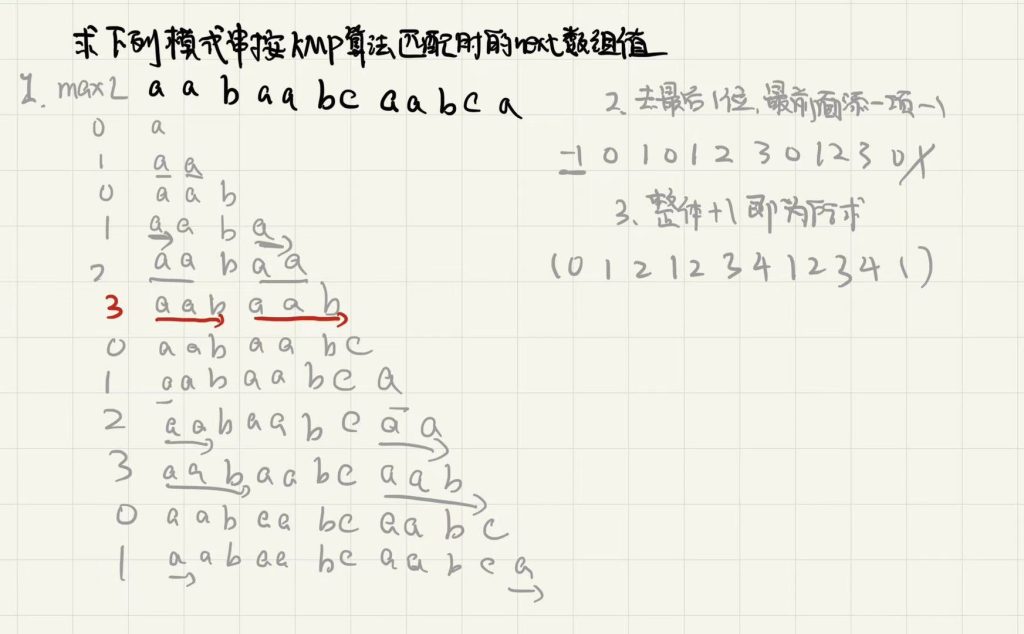 求下列模式串按KMP算法匹配时的next数组值
1. maxL a a b a a b c a a b c a
0 a
1 a a
0 a a b
1 a a b a
2 a a b a a
3 a a b a a b
0 a a b a a b c
1 a a b a a b c a
2 a a b a a b c a a
3 a a b a a b c a a b
0 a a b a a b c a a b c
1 a a b a a b c a a b c a
2. 去最后1位,最前面添一项-1
-1 0 1 0 1 2 3 0 1 2 3 0 1
3. 整体+1即为所求
(0 1 2 1 2 3 4 1 2 3 4 1)